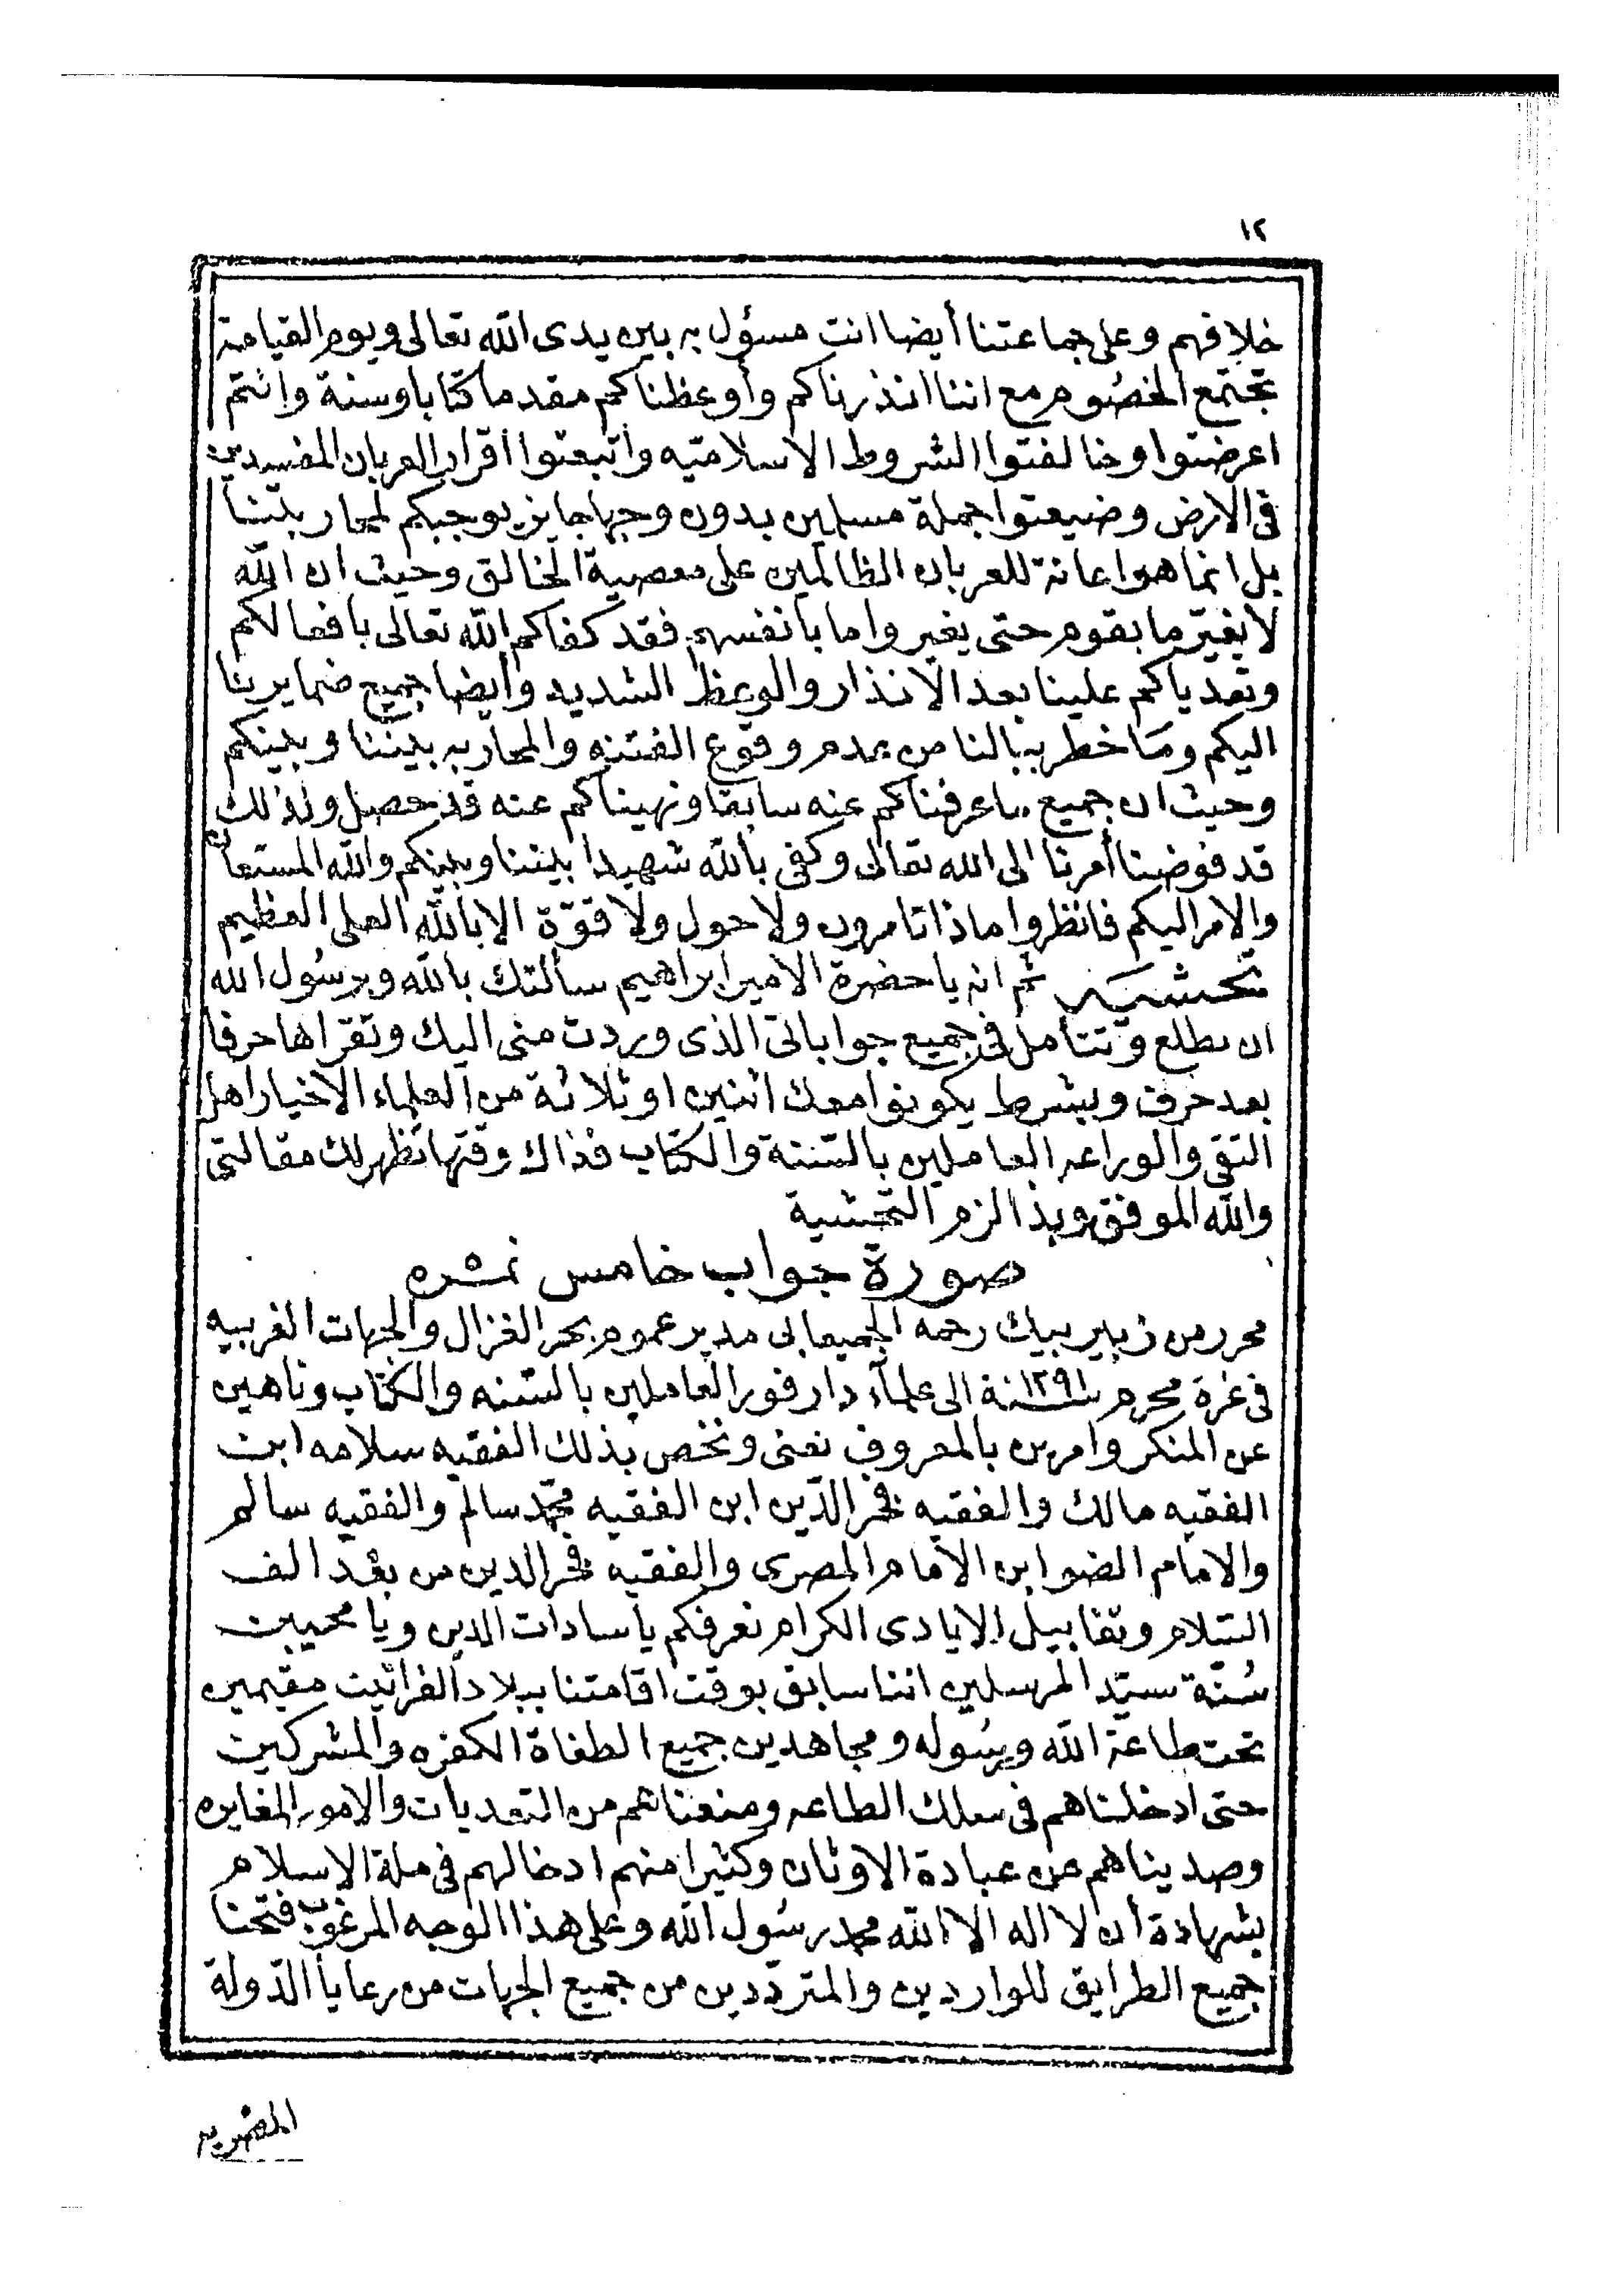 ١٢
خلافهم وعلى جماعتنا أيضا انت مسؤل به بين يدى الله تعالى ويوم القيامة
تجتمع الخصوم مع اننا انذرناكم وأوعظناكم مقدما كتابا وسنة وانتم
اعرضتوا وخالفتوا الشروط الاسلاميه واتبعتوا اقرار العربان المفسدين
فى الارض وضيعتوا جملة مسلمين بدون وجها جايز يوجبكم لمحاربتنا
بل انما هو اعانة للعربان الظالمين على معصية الخالق وحيث ان الله
لا يغيّر ما بقوم حتى يغيروا ما بأنفسهم فقد كفاكم الله تعالى بافعالكم
وتعدياكم علينا بعد الانذار والوعظ الشديد وأيضا جميع ضمايرنا
اليكم وما خطر ببالنا من عدم وقوع الفتنه والمحاربه بيننا وبينكم
وحيث ان جميع ما عرفناكم عنه سابقا ونهيناكم عنه قد حصل ولذلك
قد فوضنا أمرنا الى الله تعالى وكفى بالله شهيدا بيننا وبينكم والله المستعان
والامر اليكم فانظروا ماذا تامرون ولا حول ولا قوّة الا بالله العلى العظيم
تحشيه ثم انه يا حضرة الامير ابراهيم سألتك بالله وبرسُول الله
ان تطلع وتتأمل فى جميع جواباتى الذى وردت منى اليك وتقراها حرفا
بعد حرف وبشرط يكونوا معك اثنين او ثلاثة من العلماء الاخيار اهل
التقى والوراعه العاملين بالسّنة والكتاب فذاك وقتها تظهر لك مقالتى
والله الموفق وبذا لزم التحشية
صورة جواب خامس نمره
محرر من زبير بيك رحمه الجميعابى مدير عموم بحر الغزال والجهات الغربيه
فى غرة محرم سنة ١٢٩١ الى علمآء دارفور العاملين بالسّنه والكتاب وناهين
عن المنكر وامرين بالمعروف نعنى ونخص بذلك الفقيه سلامه ابن
الفقيه مالك والفقيه فخر الدّين ابن الفقيه محمّد سالم والفقيه سالم
والامام الضو ابن الامام المصرى والفقيه فخر الدين من بعْد الف
السّلام وتقابيل الايادى الكرام نعرفكم يا سادات الدين ويا محيين
سُنّة سيّد المرسلين اننا سابق بوقت اقامتنا ببلاد الفراتيت مقيمين
تحت طاعة الله ورسُوله ومجاهدين جميع الطغاة الكفره والمشركين
حتى ادخلناهم فى سلك الطاعه ومنعناهم من التعديات والامور المغايره
وصديناهم عن عبادة الاوثان وكثيرا منهم ادخالهم فى ملة الاسلام
بشهادة أن لا اله الا الله محمد رسُول الله وعلى هذا الوجه المرغوب فتحنا
جميع الطرايق للواردين والمتردّدين من جميع الجهات من رعايا الدّولة
المصريه